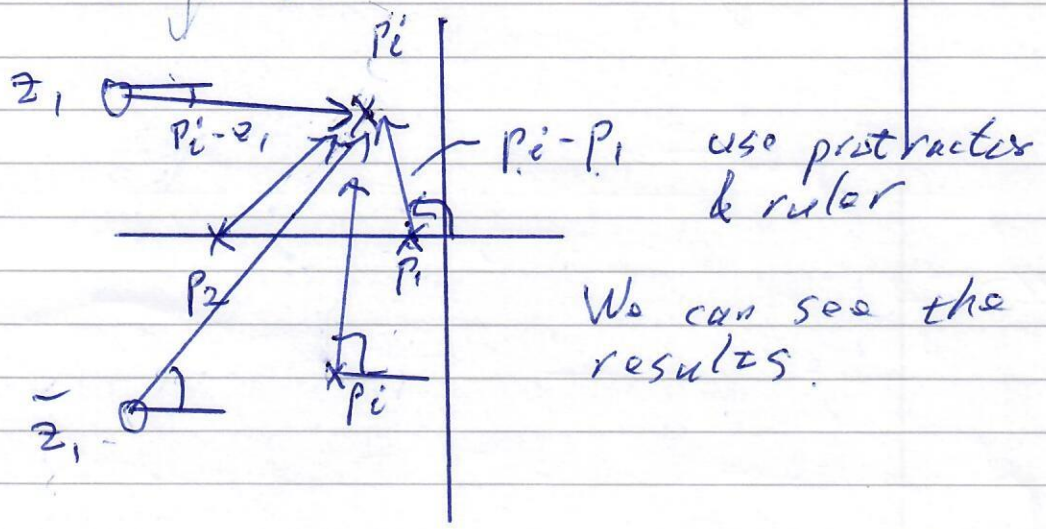 pi
z1
pi-z1
pi-p1
use protractor
& ruler
p2
p1
We can see the
results.
pi
z̄1